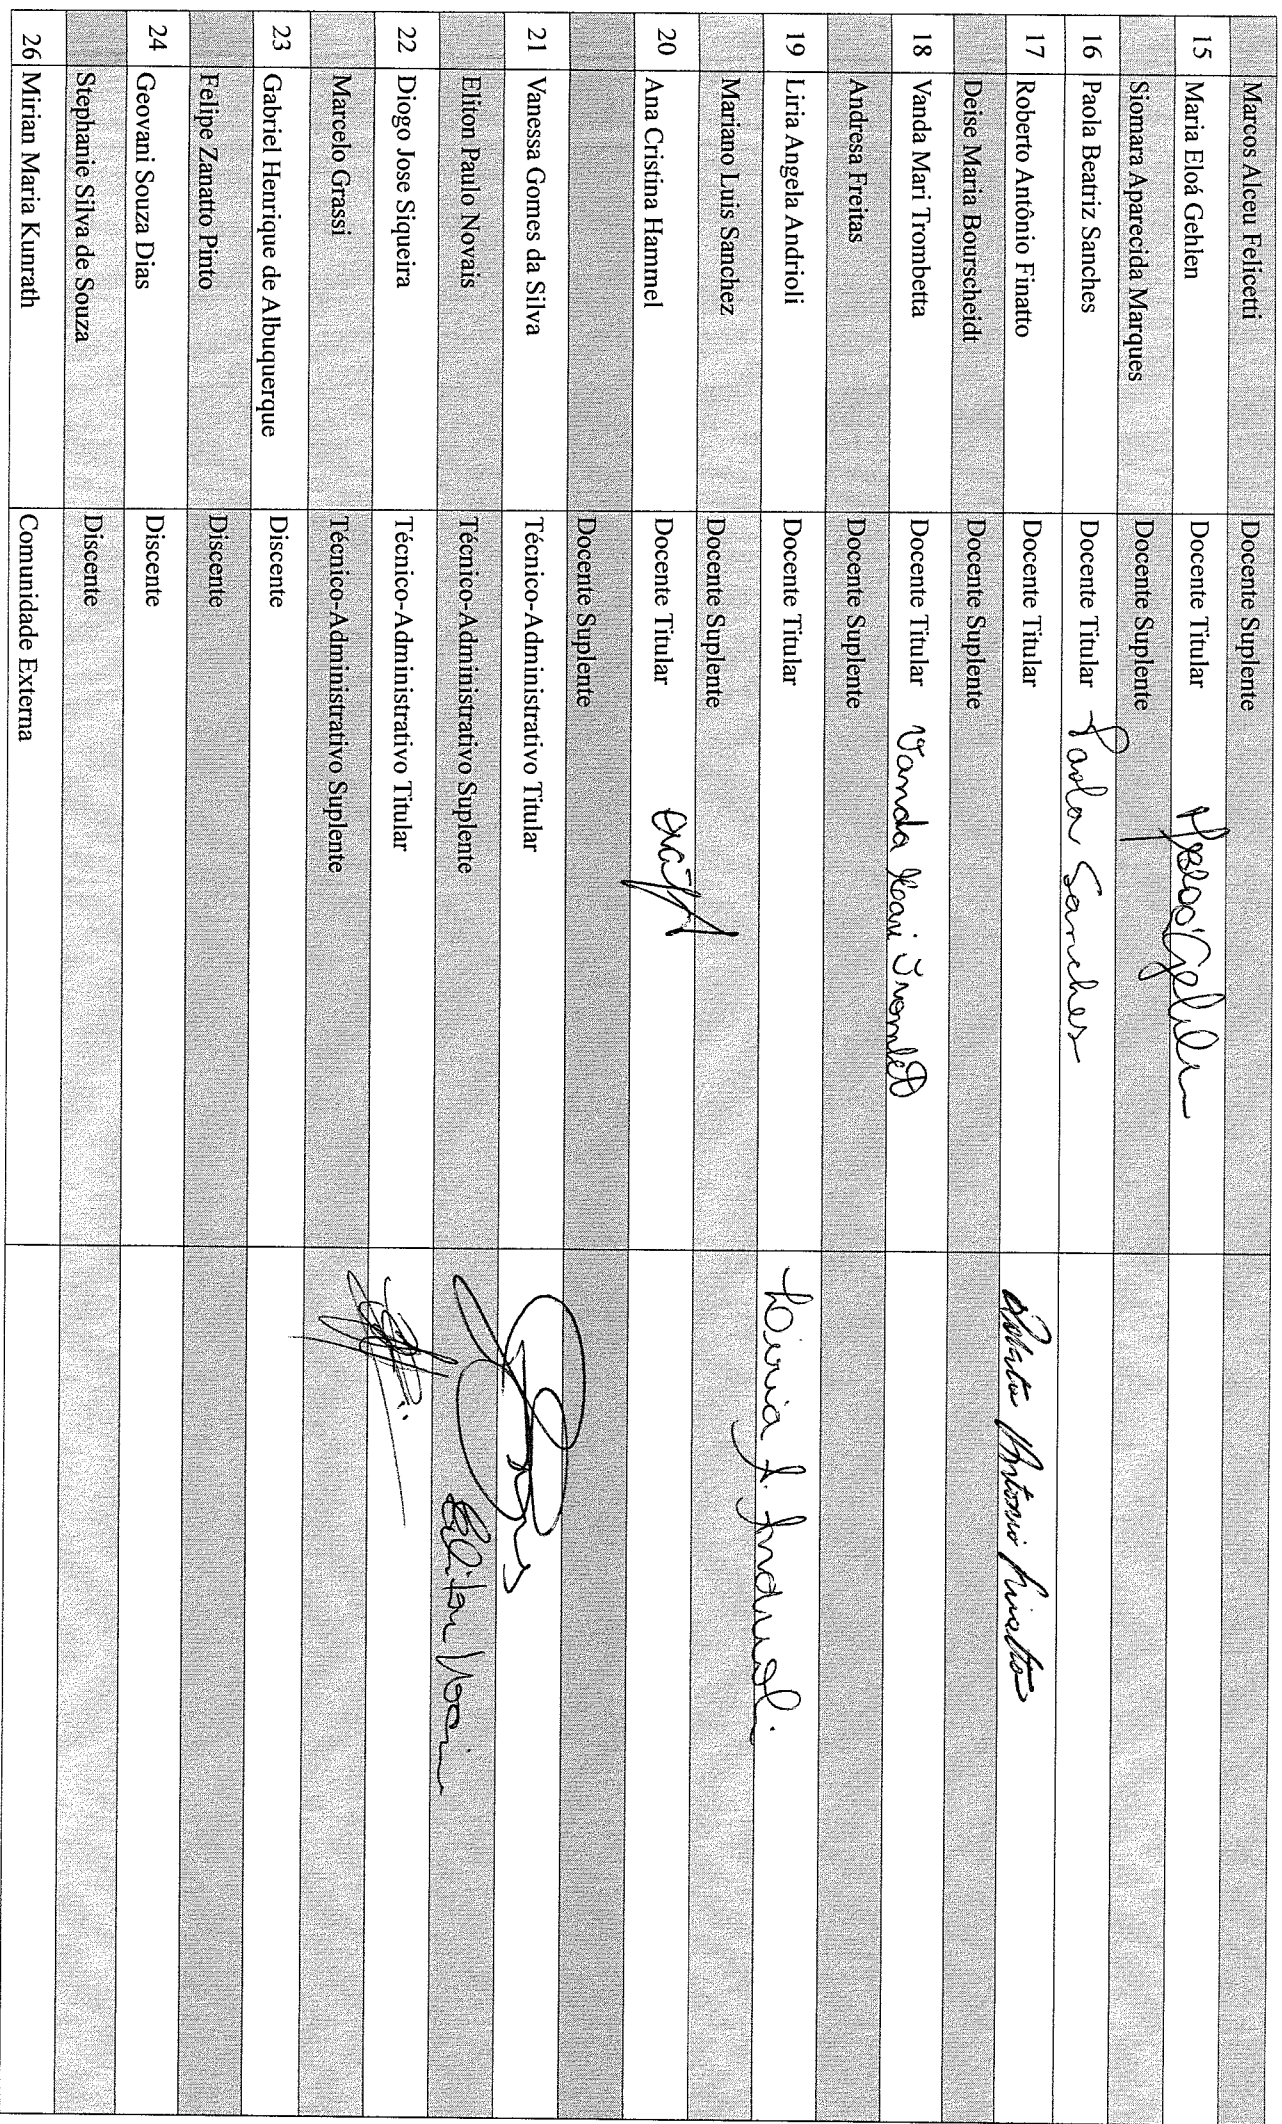 Marcos Alceu Felicetti Docente Suplente
15 Maria Eloá Gehlen Docente Titular
Siomara Aparecida Marques Docente Suplente
16 Paola Beatriz Sanches Docente Titular Paola Sanches
17 Roberto Antônio Finatto Docente Titular Roberto Antonio Finatto
Deise Maria Bourscheidt Docente Suplente
18 Vanda Mari Trombetta Docente Titular Vanda Mari Trombetta
Andresa Freitas Docente Suplente
19 Liria Angela Andrioli Docente Titular Liria A. Andrioli
Mariano Luis Sanchez Docente Suplente
20 Ana Cristina Hammel Docente Titular
Docente Suplente
21 Vanessa Gomes da Silva Técnico-Administrativo Titular
Eliton Paulo Novais Técnico-Administrativo Suplente Eliton Novais
22 Diogo Jose Siqueira Técnico-Administrativo Titular
Marcelo Grassi Técnico-Administrativo Suplente
23 Gabriel Henrique de Albuquerque Discente
Felipe Zanatto Pinto Discente
24 Geovani Souza Dias Discente
Stephanie Silva de Souza Discente
26 Mirian Maria Kunrath Comunidade Externa